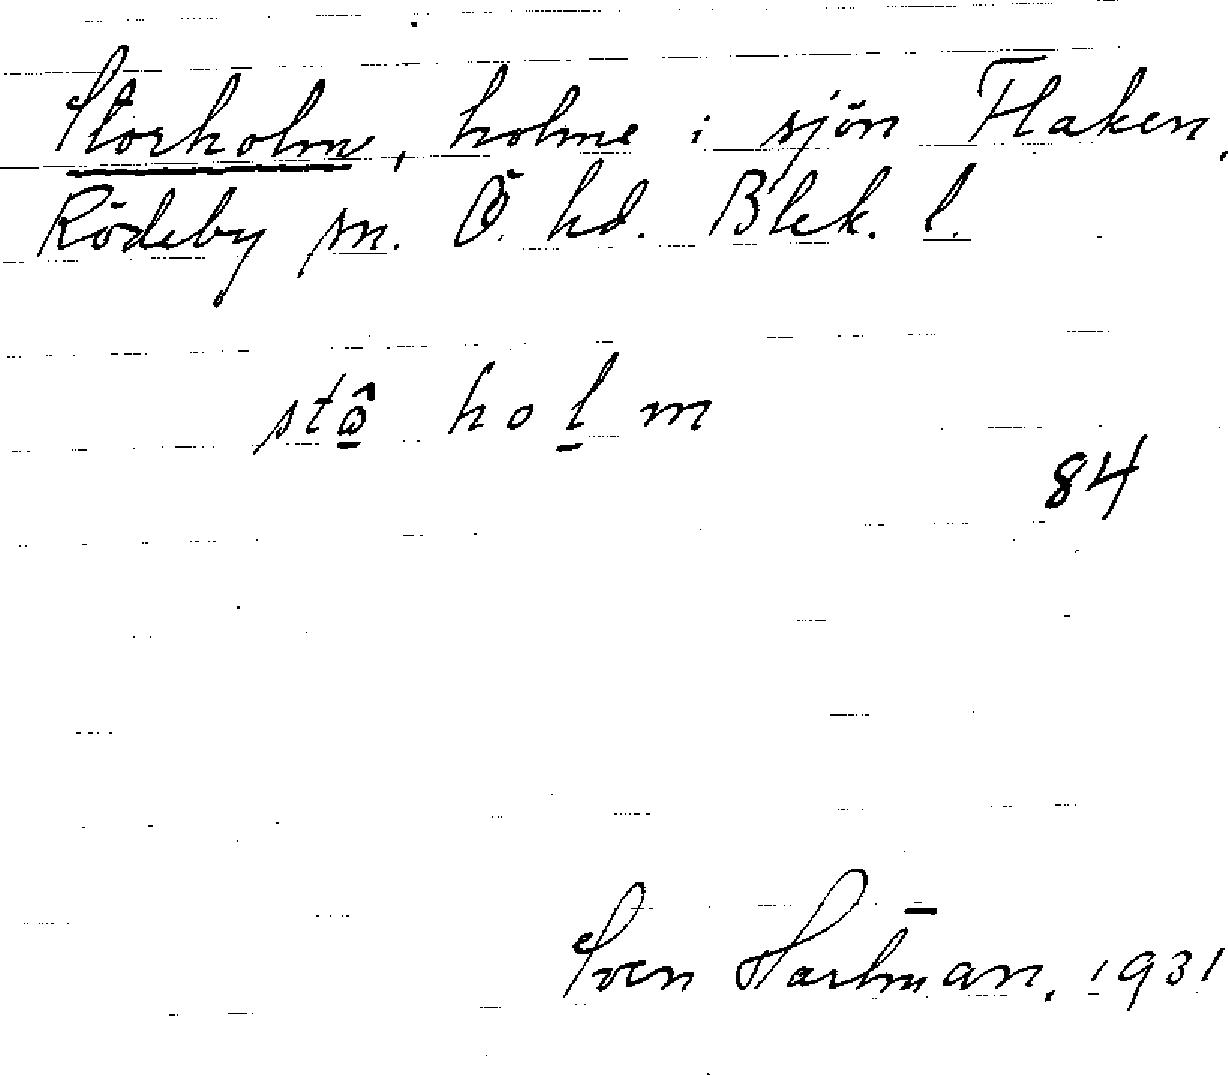 Storholm, holme i sjön Flaken,
Rödeby sn. Ö. hd. Blek. l.
stå̂ holm
84
Sven Hartman. 1931